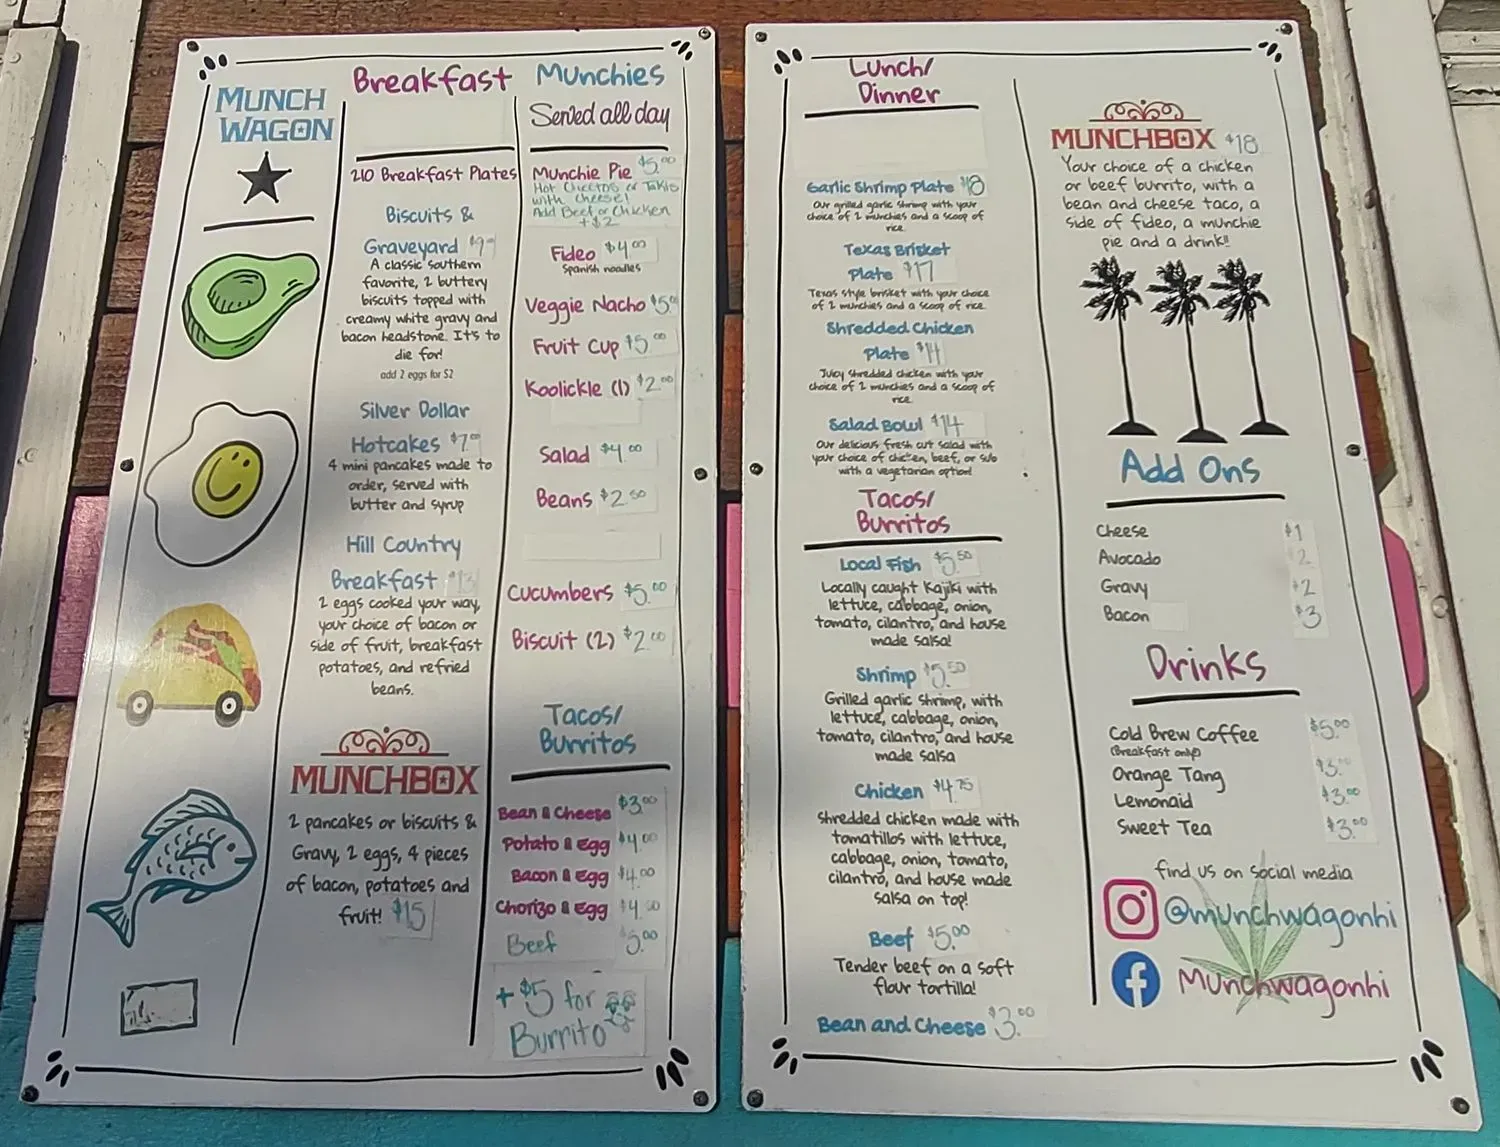 MUNCH
WAGON
Breakfast
210 Breakfast Plates
Biscuits &
Graveyard $9
A classic southern
favorite, 2 buttery
biscuits topped with
creamy white gravy and
bacon headstone. It's to
die for!
add 2 eggs for $2
Silver Dollar
Hotcakes $7.00
4 mini pancakes made to
order, served with
butter and syrup
Hill Country
Breakfast $13
2 eggs cooked your way,
your choice of bacon or
side of fruit, breakfast
potatoes, and refried
beans.
MUNCHBOX
2 pancakes or biscuits &
Gravy, 2 eggs, 4 pieces
of bacon, potatoes and
fruit! $15
Munchies
Served all day
Munchie Pie $5.00
Hot Cheetos or Takis
with cheese!
Add Beef or Chicken
+$2
Fideo $4.00
Spanish noodles
Veggie Nacho $5.00
Fruit Cup $5.00
Koolickle (1) $2.00
Salad $4.00
Beans $2.50
Cucumbers $5.00
Biscuit (2) $2.00
Tacos/
Burritos
Bean & Cheese $3.00
Potato & Egg $4.00
Bacon & Egg $4.00
Chorizo & Egg $4.50
Beef $5.00
+ $5 for
Burrito
Lunch/
Dinner
Garlic Shrimp Plate $18
Our grilled garlic shrimp with your
choice of 2 munchies and a scoop of
rice.
Texas Brisket
Plate $17
Texas style brisket with your choice
of 2 munchies and a scoop of rice.
Shredded Chicken
Plate $14
Juicy shredded chicken with your
choice of 2 munchies and a scoop of
rice.
Salad Bowl $14
Our delicious fresh cut salad with
your choice of chicken, beef, or sub
with a vegetarian option!
Tacos/
Burritos
Local Fish $5.50
Locally caught Kajiki with
lettuce, cabbage, onion,
tomato, cilantro, and house
made salsa!
Shrimp $5.50
Grilled garlic shrimp, with
lettuce, cabbage, onion,
tomato, cilantro, and house
made salsa
Chicken $4.75
Shredded chicken made with
tomatillos with lettuce,
cabbage, onion, tomato,
cilantro, and house made
salsa on top!
Beef $5.00
Tender beef on a soft
flour tortilla!
Bean and Cheese $3.00
MUNCHBOX $18
Your choice of a chicken
or beef burrito, with a
bean and cheese taco, a
side of fideo, a munchie
pie and a drink!!
Add Ons
Cheese $1
Avocado $2
Gravy $2
Bacon $3
Drinks
Cold Brew Coffee $5.00
(Breakfast only)
Orange Tang $3.00
Lemonaid $3.00
Sweet Tea $3.00
find us on social media
@munchwagonhi
Munchwagonhi